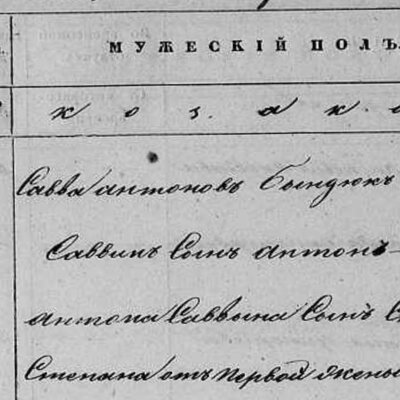 МУЖЕСКІЙ ПОЛЪ.
к о з а к о
Савва антоновъ Бындюкъ
Саввинъ Сынъ антонъ
антона Саввына Сынъ
Степана отъ первой жены